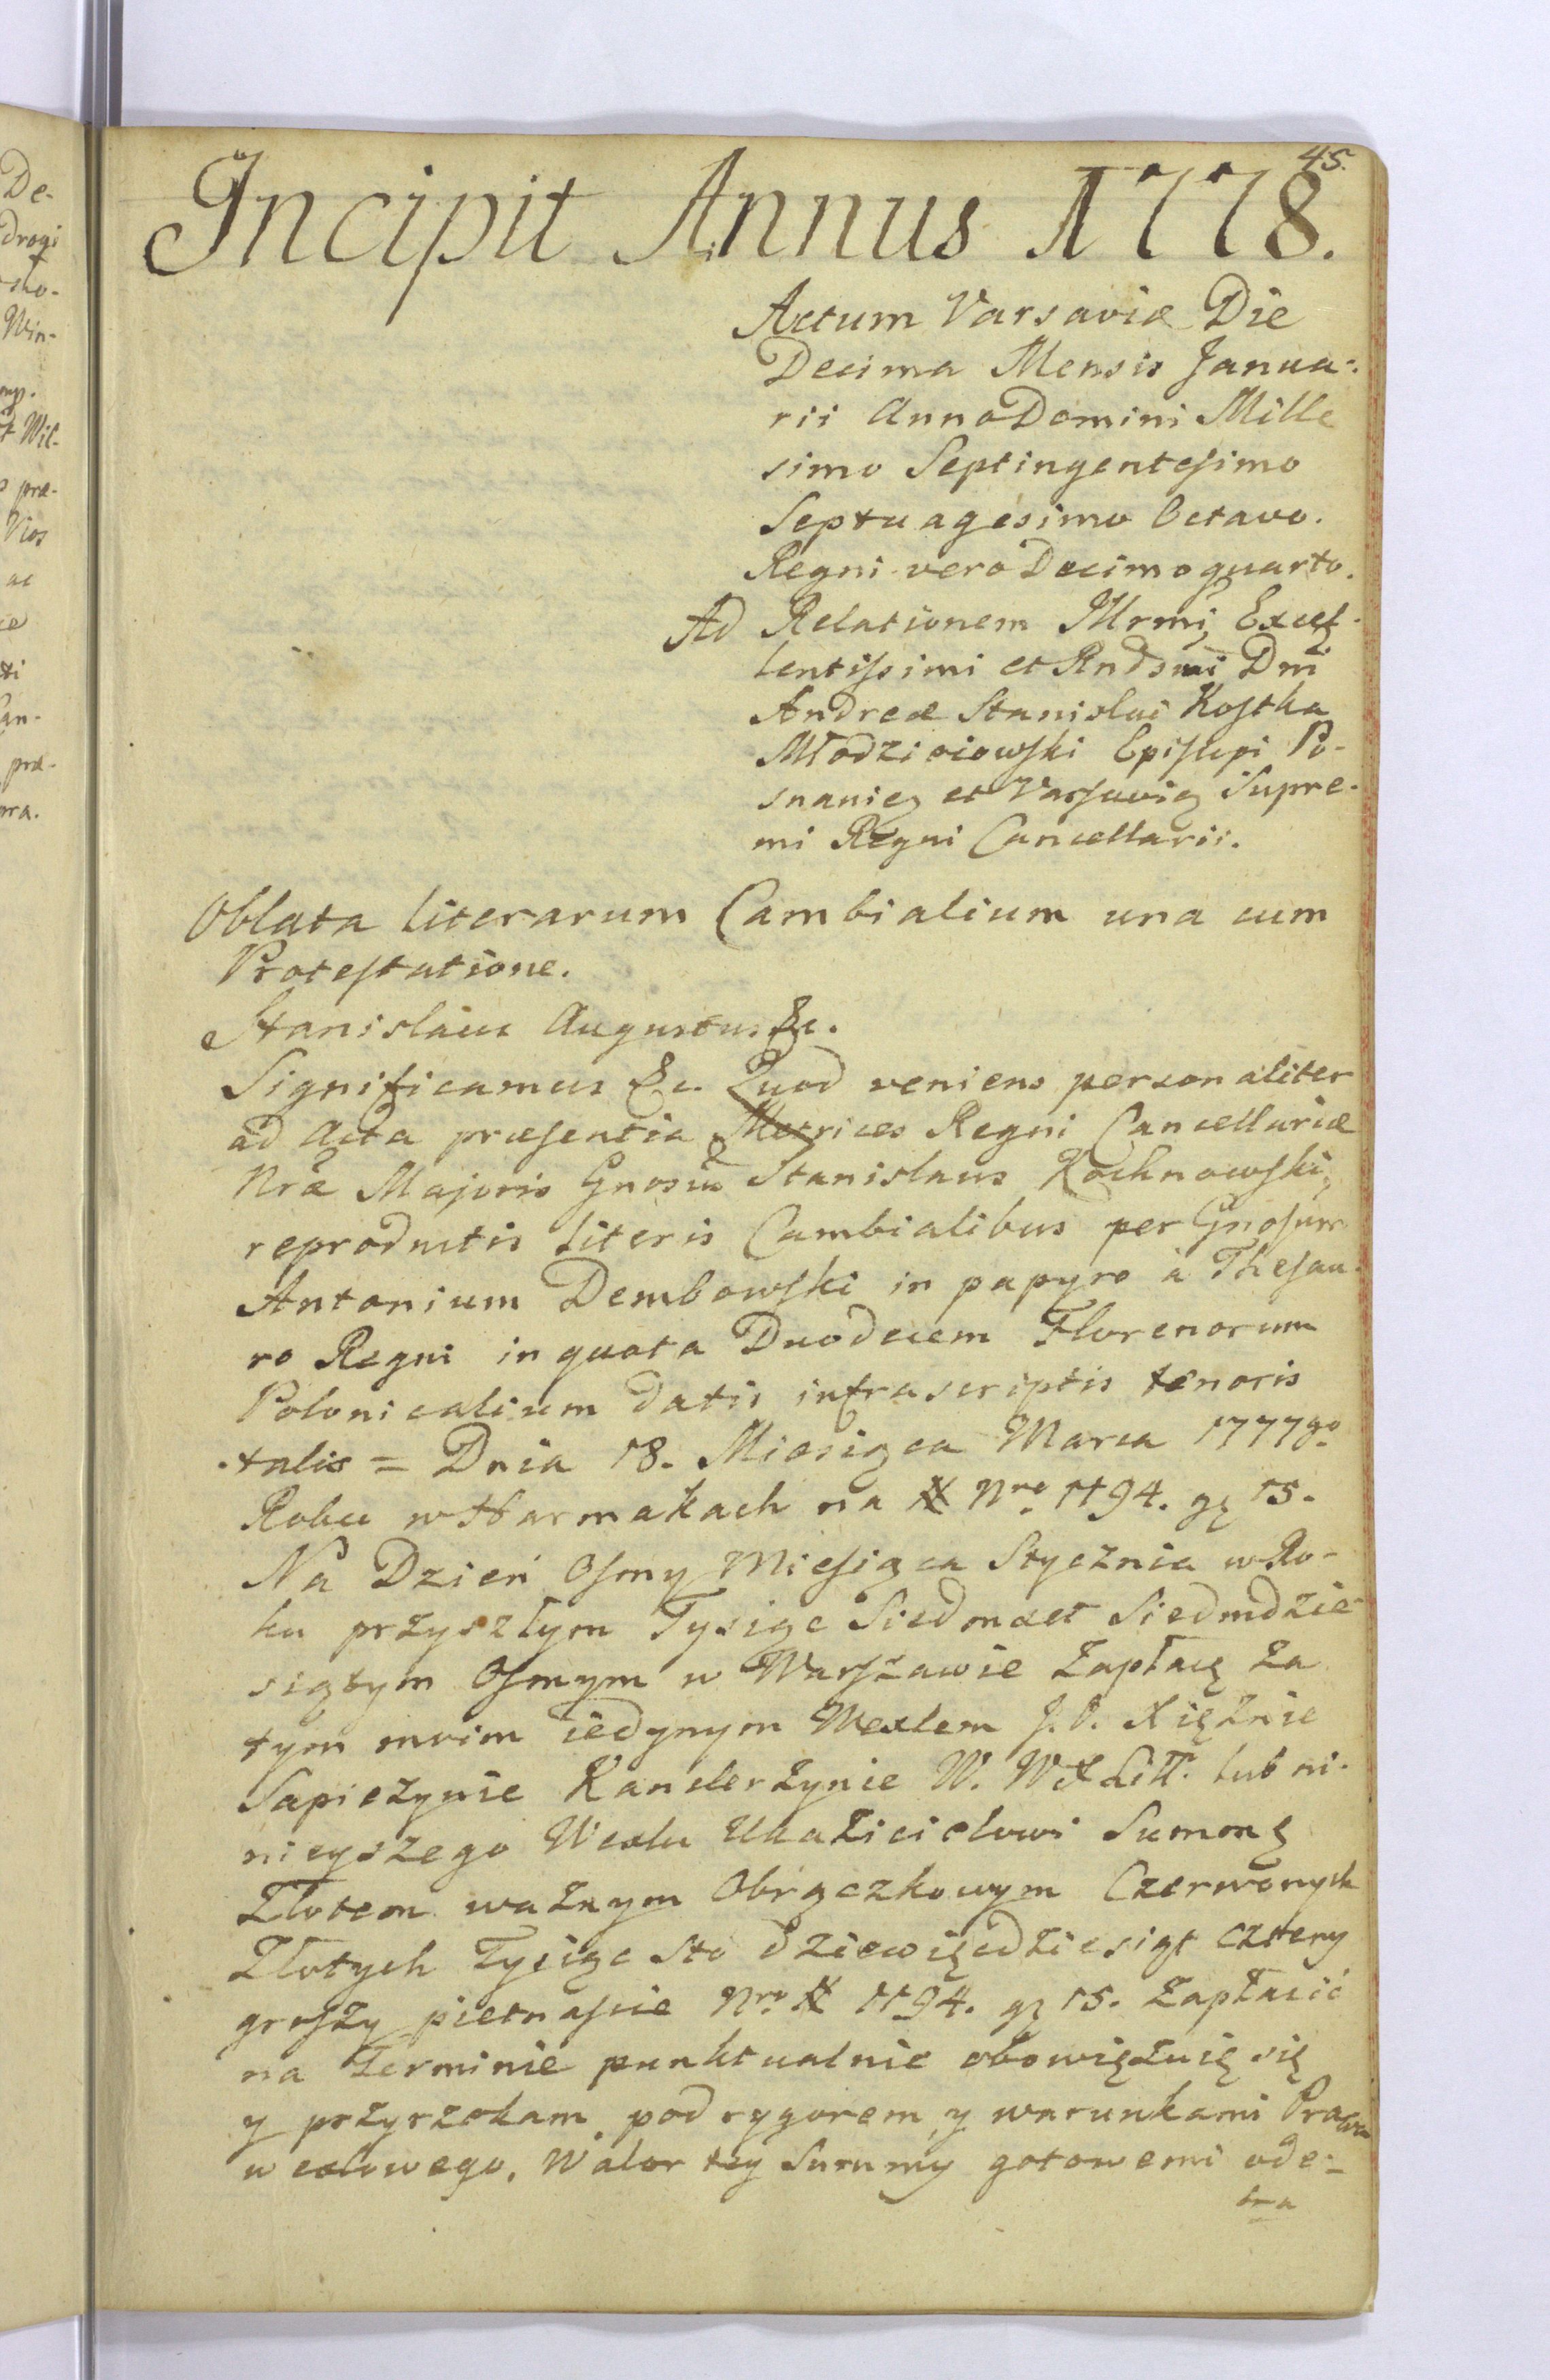 45.
Incipit Annus 1778.
Actum Varsaviæ Die
Decima Mensis Janua-
rii Anno Domini Mille
simo Septingentesimo
Septuagesimo Octavo.
Regni vero Decimo quarto.
Ad Relationem Illrmi, Excel-
lentissimi et Rndsmi Dni
Andreæ Stanislai Kostka
Młodzieiowski Episcopi Po-
snanię et Varsavię Supre-
mi Regni Cancellarii.
Oblata literarum Cambialium una cum
Protestatione.
Stanislaus Augustus &c.
Significamus &c. Quod veniens personaliter
ad Acta præsentia Metrices Regni Cancellariæ
Nræ Majoris Gnosus Stanislaus Kochnowski,
reproductis literis Cambialibus per Gnosum
Antonium Dembowski in papyro à Thesau-
ro Regni in quota Duodecem Florenorum
Polonicalium datis infrascriptis tenoris
talis = Dnia 18. Miesiąca Marca 1777go
Roku w Harmakach na # Nro 1194. gę 15.
Na Dzień Osmy Miesiąca Stycznia w Ro-
ku przyszłym Tysiąc Siedmset Siedmdzie
siątym Osmym w Warszawie Zapłacę za
tym moim iedynym Wexlem J. O. Xiężnie
Sapieżynie Kanclerzynie W. W X Litt. lub ni-
nieyszego Wexlu Ukazicielowi Summę
Złotem ważnym Obrączkowym Czerwonych
Złotych Tysiąc Sto dziewięćdziesiąt cztery
groszy pietnaście Nro # 1194. gę 15. Zapłacić
na Terminie punktualnie obowięzuię się
y przyrzekam pod rygorem y warunkami Prawa
wexlowego, Walor tey Summy gotowemi ode-
bra
De-
drogi
Win-
Wil-
præ-
ac